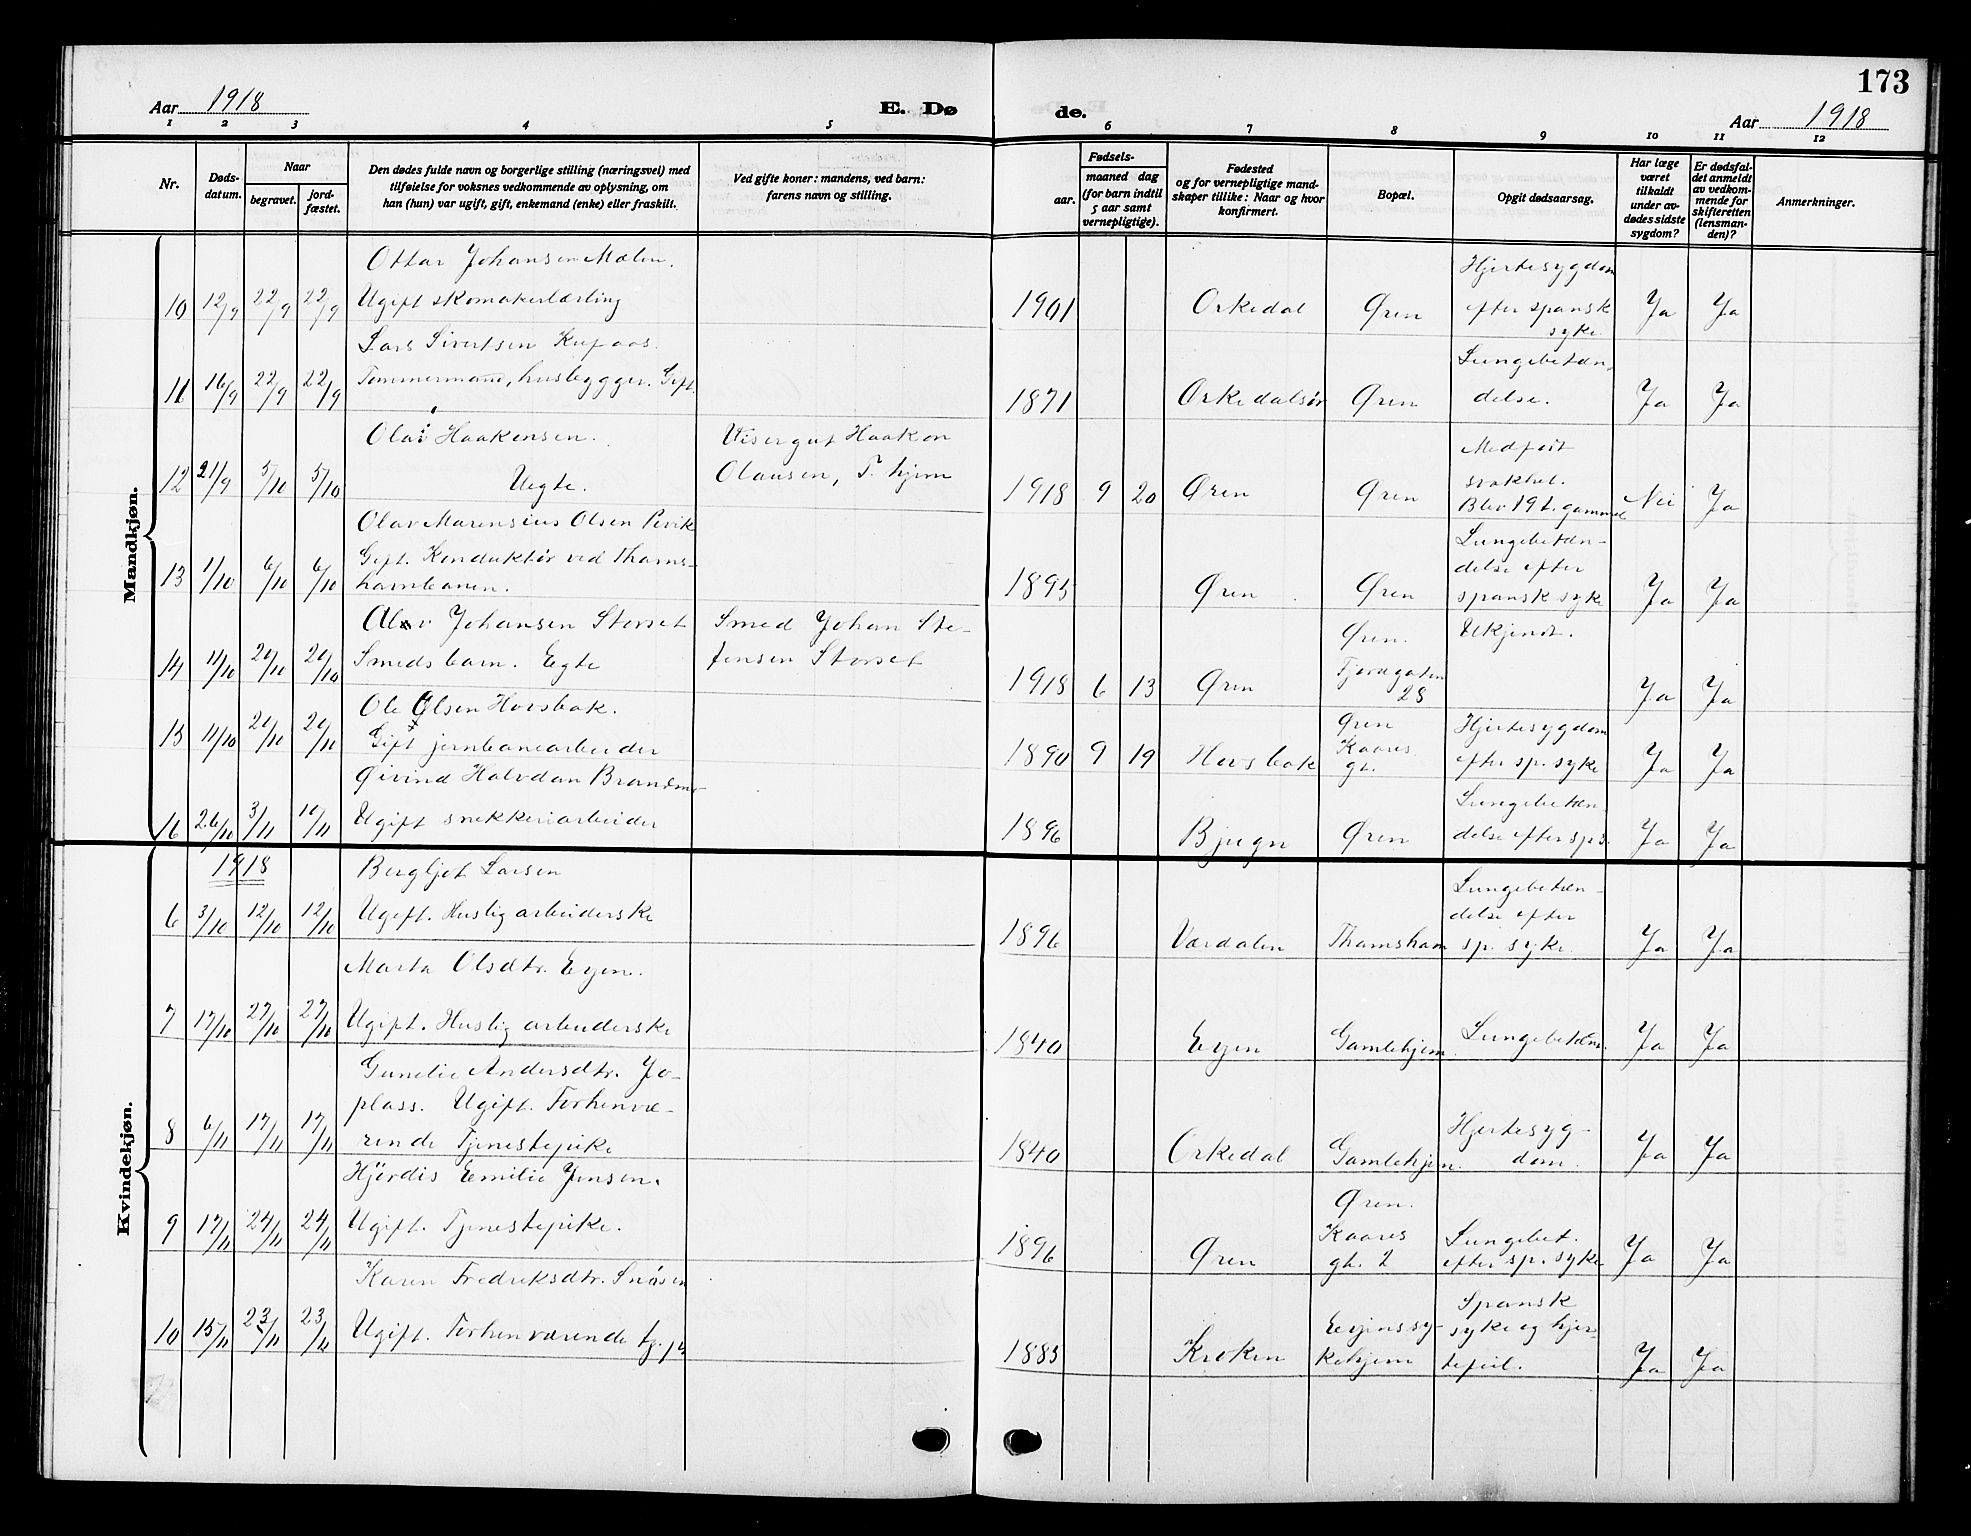 173
Aar 1918
E. Døde.
Aar 1918
1 2 3 4 5 6 7 8 9 10 11 12
Nr.
Dødsdatum.
Naar
begravet.
jordfæstet.
Den dødes fulde navn og borgerlige stilling (næringsvei) med
tilføielse for voksnes vedkommende av oplysning, om
han (hun) var ugift, gift, enkemand (enke) eller fraskilt.
Ved gifte koner: mandens, ved barn:
farens navn og stilling.
Fødsels-
aar.
maaned dag
(for barn indtil
5 aar samt
vernepligtige).
Fødested
og for vernepligtige mand-
skaper tillike: Naar og hvor
konfirmert.
Bopæl.
Opgit dødsaarsag.
Har læge
været
tilkaldt
under av-
dødes sidste
sygdom?
Er dødsfal-
det anmeldt
av vedkom-
mende for
skifteretten
(lensman-
den)?
Anmerkninger.
Mandkjøn.
Ottar Johansen Mælen.
Hjertesygdom
10 12/9 22/9 22/9 Ugift skomakerlærling 1901 Orkedal Øren efter spansk Ja Ja
syke.
Lars Sivertsen
Lungebetæn-
11 16/9 22/9 22/9 Tømmermand, husbygger. Gift. 1871 Orkedalsør Øren delse. Ja Ja
Olai Haakensen. Visergut Haakon
Medfødt
12 21/9 5/10 5/10 Uegte. Olausen, T.hjem 1918 9 20 Øren Øren svakhet. Nei Ja
Blev 19 t. gammel
Olav Marensius Olsen
Lungebetæn-
Gift. Konduktør ved Thams-
delse efter
13 1/10 6/10 6/10 havnbanen. 1895 Øren Øren spansk syke Ja Ja
Olav Johansen Storset Smed Johan Ste-
Øren. Ukjendt.
14 11/10 20/10 20/10 Smedsbarn. Egte fensen Storset 1918 6 13 Øren Fjordgaten Ja Ja
28
Ole Olsen Hovsbak.
Øren Hjertesygdom
15 11/10 20/10 20/10 Gift jernbanearbeider 1890 9 19 Hovsbak Kaares efter sp. syke Ja Ja
gt.
Øivind Halvdan
Lungebetæn
16 26/10 3/11 10/11 Ugift snekkeriarbeider 1896 Bjugn Øren delse efter sp s. Ja Ja
Kvindekjøn.
1918
Bergljot Larsen
Lungebetæn-
delse efter
6 3/10 12/10 12/10 Ugift. Huslig arbeiderske 1896 Værdalen Thamshavn sp. syke. Ja Ja
Marta Olsdtr. Evjen.
7 17/10 27/10 27/10 Ugift. Huslig arbeiderske 1840 Evjen Gamlehjem. Lungebetæn. Ja Ja
Gunelie Andersdtr. Jo-
plass. Ugift. Forhenvæ-
Hjertesyg-
8 6/11 17/11 17/11 rende Tjenestepike 1840 Orkedal Gamlehjem. dom. Ja Ja
Hjördis Emilie Jensen.
Øren.
9 17/11 24/11 24/11 Ugift. Tjenestepike. 1896 Øren Kaares Lungebet. Ja Ja
gt. 2 efter sp. syke
Karen Fredriksdtr. Snösen
Spansk
Evjens sy- syke og hjer-
10 15/11 23/11 23/11 Ugift. Forhenværende tj. p. 1883 Kroken kehjem tefeil. Ja Ja